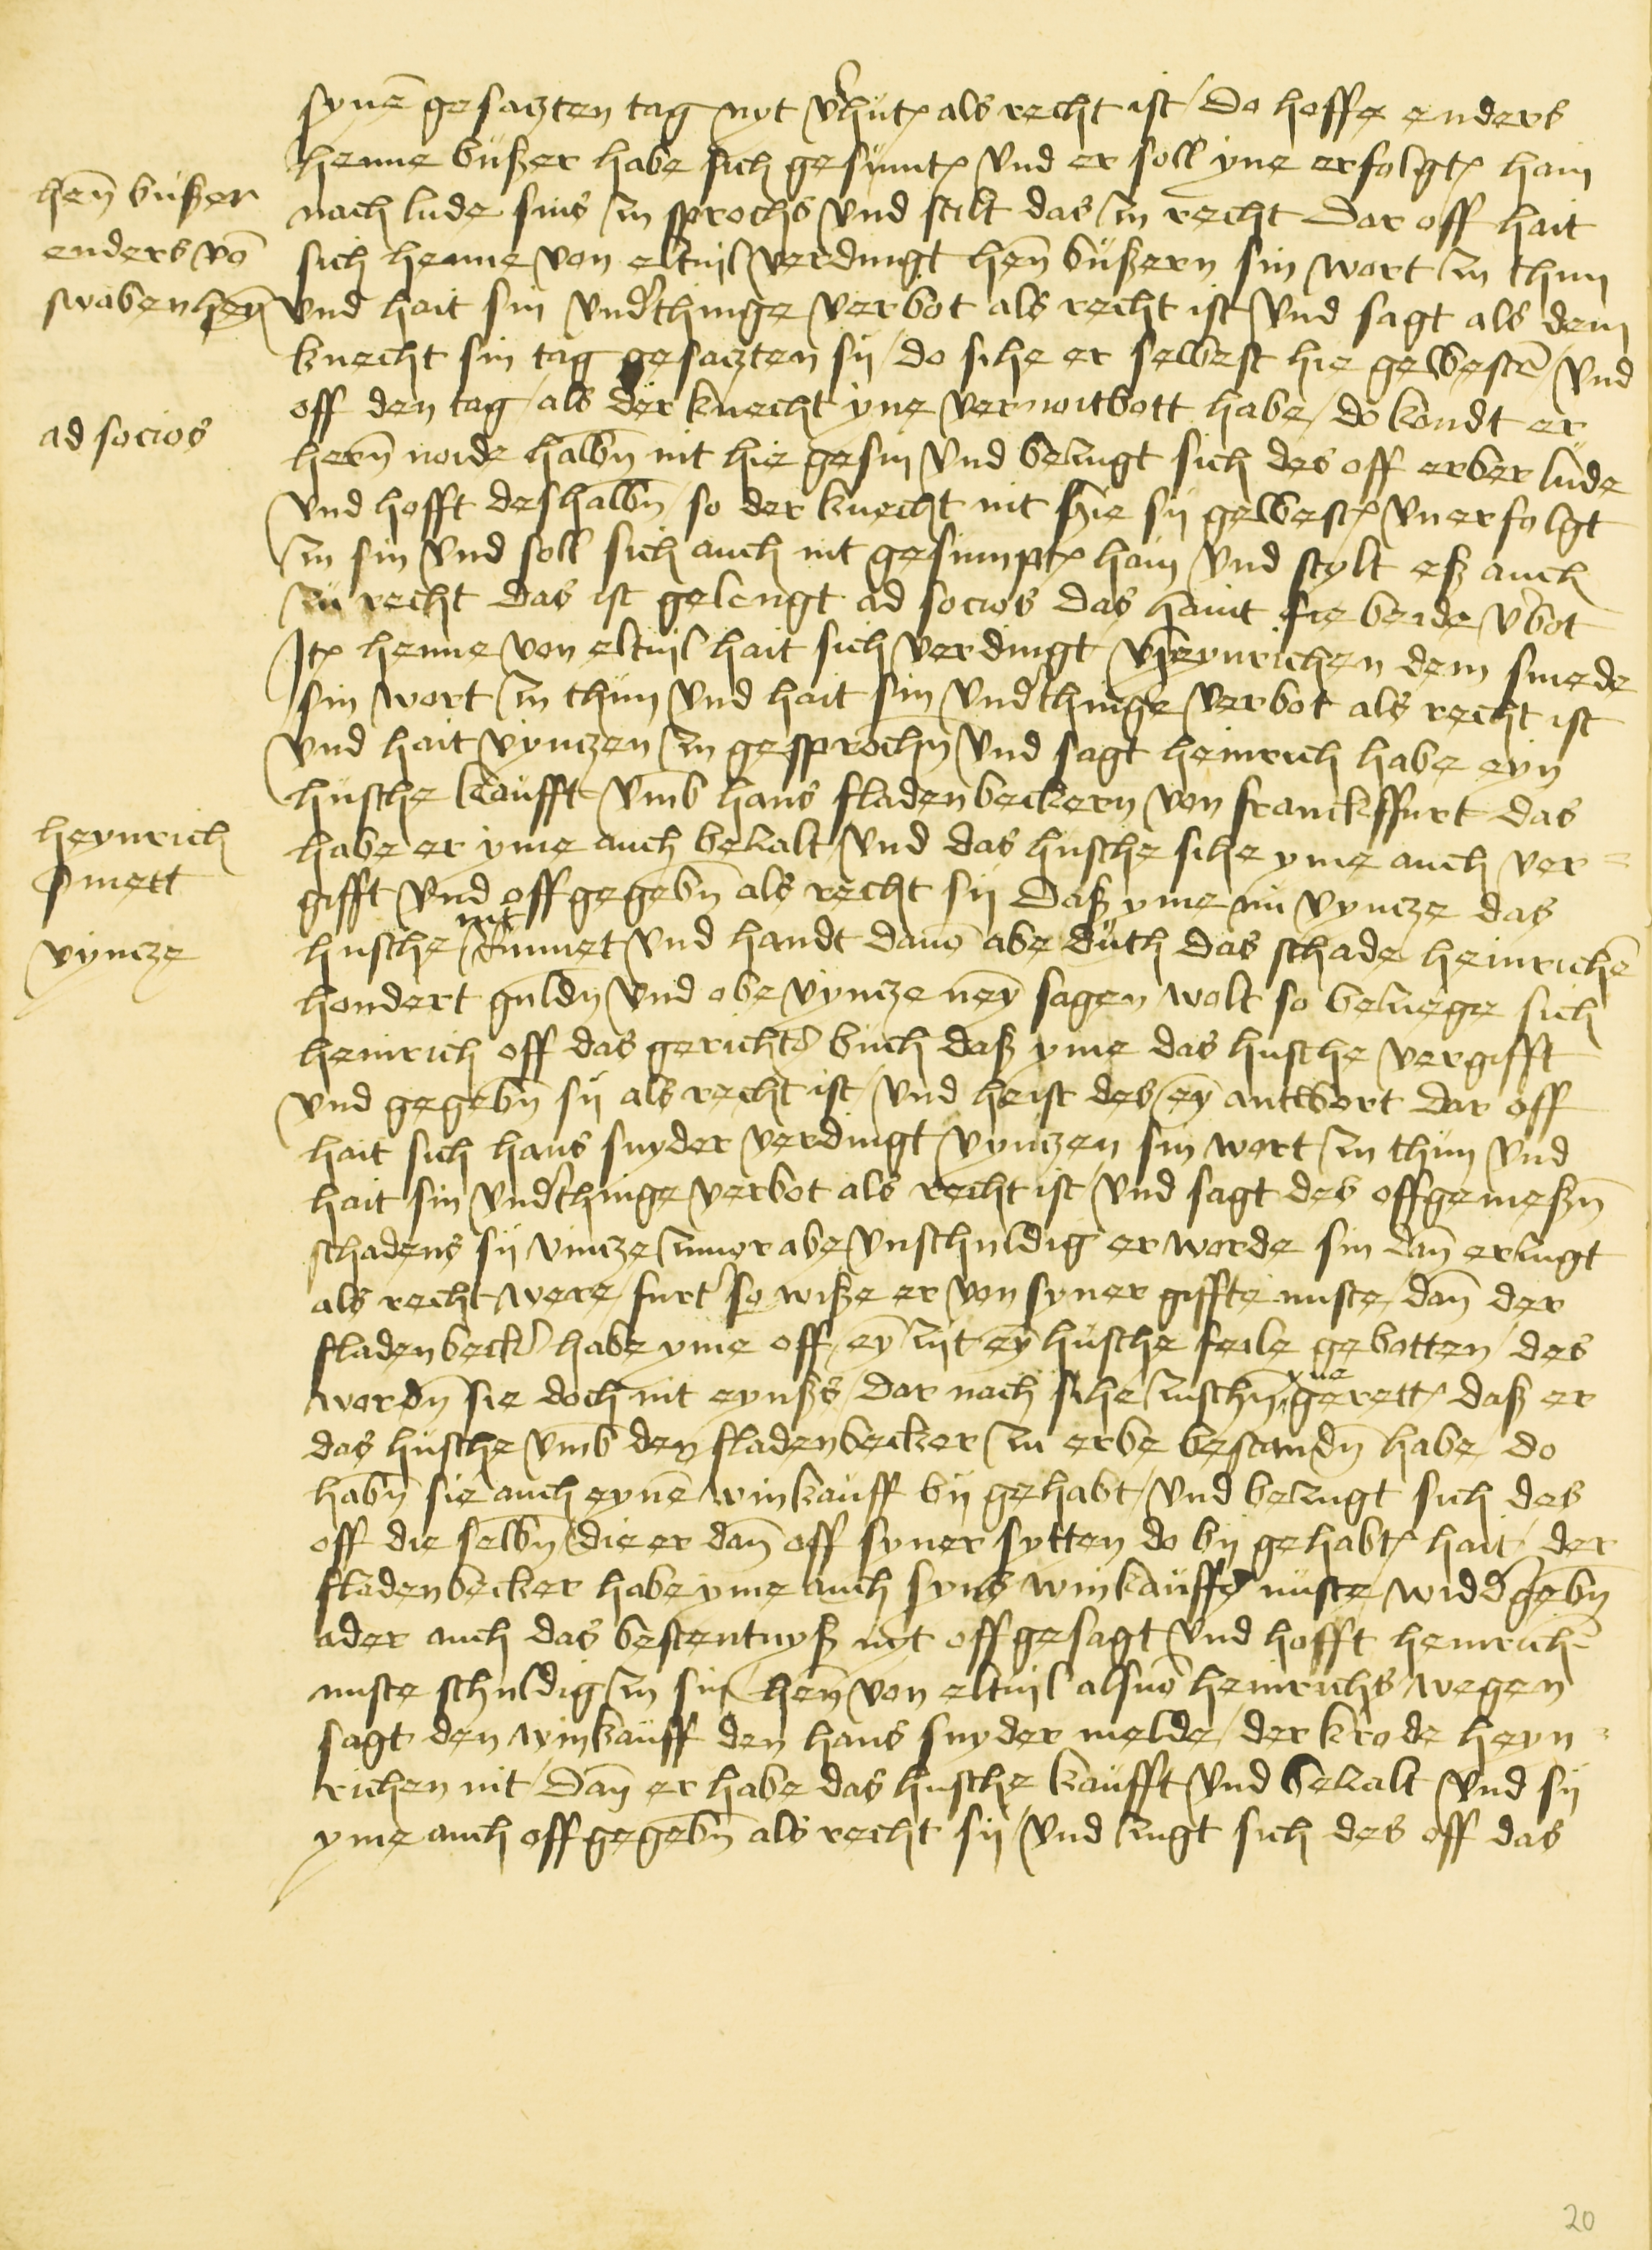 hen̄ bußer
enders vō
swabenheȳ
ad socios
heynrich
smett
vyncze
synē gesaczten tag nyt v'hut als recht ist / Do hoffe enders
henne bußer habe sich gesumt vnd er soll yne erfolgt hain
nach lude sins zu sprochs vnd stilt das zu recht Dar off hait
sich henne von eltuil verdingt hen̄ bußern sin wort zu thun
vnd hait sin vnd'thinge verbot als recht ist vnd sagt als dem
knecht sin tag gesaczten sij / do sihe er selbest hie gewestē / vnd
off den tag / als der knecht yne verwitbott habe / do kondt er
hern̄ noide halbn̄ nit hie gesin vnd beczugt sich des off erber lude
vnd hofft deshalbn̄ / so der knecht nit hie sij gewest vnerfolgt
zu sin vnd soll sich auch nit gesumpt hain vnd stylt eß auch
zu recht das ist gelengt ad socios das haint sie beide v'bot
Jt henne von eltuil hait sich verdingt heynrichen dem smede
sin wort zu thun vnd hait sin vnd'thinge verbot als recht ist
vnd hait vynczen zu gesprochn̄ vnd sagt heinrich habe eyn
husche kaufft vmb hans fladenbeckern von franckffurt das
habe er yme auch beczalt vnd das husche sihe yme auch ver=
gifft vnd offgegebn̄ als recht sij Daß yme nu vyncze das
husche nit rumet vnd handt dauō abe duth das schade heinrichē
hondert guldn̄ vnd obe vyncze ney sagen wolt so beczuege sich
heinrich off das gerichts buch daß yme das husche vergifft
vnd gegebn̄ sij als recht ist / vnd heist des ey antwort dar off
hait sich hans snyder verdingt vynczen sin wort zu thun vnd
hait sin vnd'thinge verbot als recht ist / vnd sagt des offgemeßn̄
schadens sij vincze zuuor abe vnschuldig er worde sin dan̄ erczugt
als recht were / furt' so wiße er von syner giffte nuste / dan̄ der
fladenbeck' habe yme off / ey zijt ey husche feile gebotten / des
wordn̄ sie doch nit eynßs / dar nach sihe zuschn̄ yne gerett daß er
das husche vmb den fladenbecker zu erbe bestandn̄ habe / do
habn̄ sie auch eynē winkauff bij gehabt / vnd beczugt sich des
off die selbn̄ / die er dan̄ off syner sytten do bij gehabt hait / der
fladenbecker habe yme auch syns winkauffs nuste / widd'gebn̄
ader auch das bestentnyß nyt offgesagt vnd hofft heinrichē
nuste schuldig zu sin / hen̄ von eltuil als vō heinrichs wegen
sagt den wynkauff den hans snyder melde / der krode heyn=
richen nit / Dan̄ er habe das husche kaufft vnd beczalt vnd sij
yme auch offgegebn̄ als recht sij / vnd czugt sich des off das
20